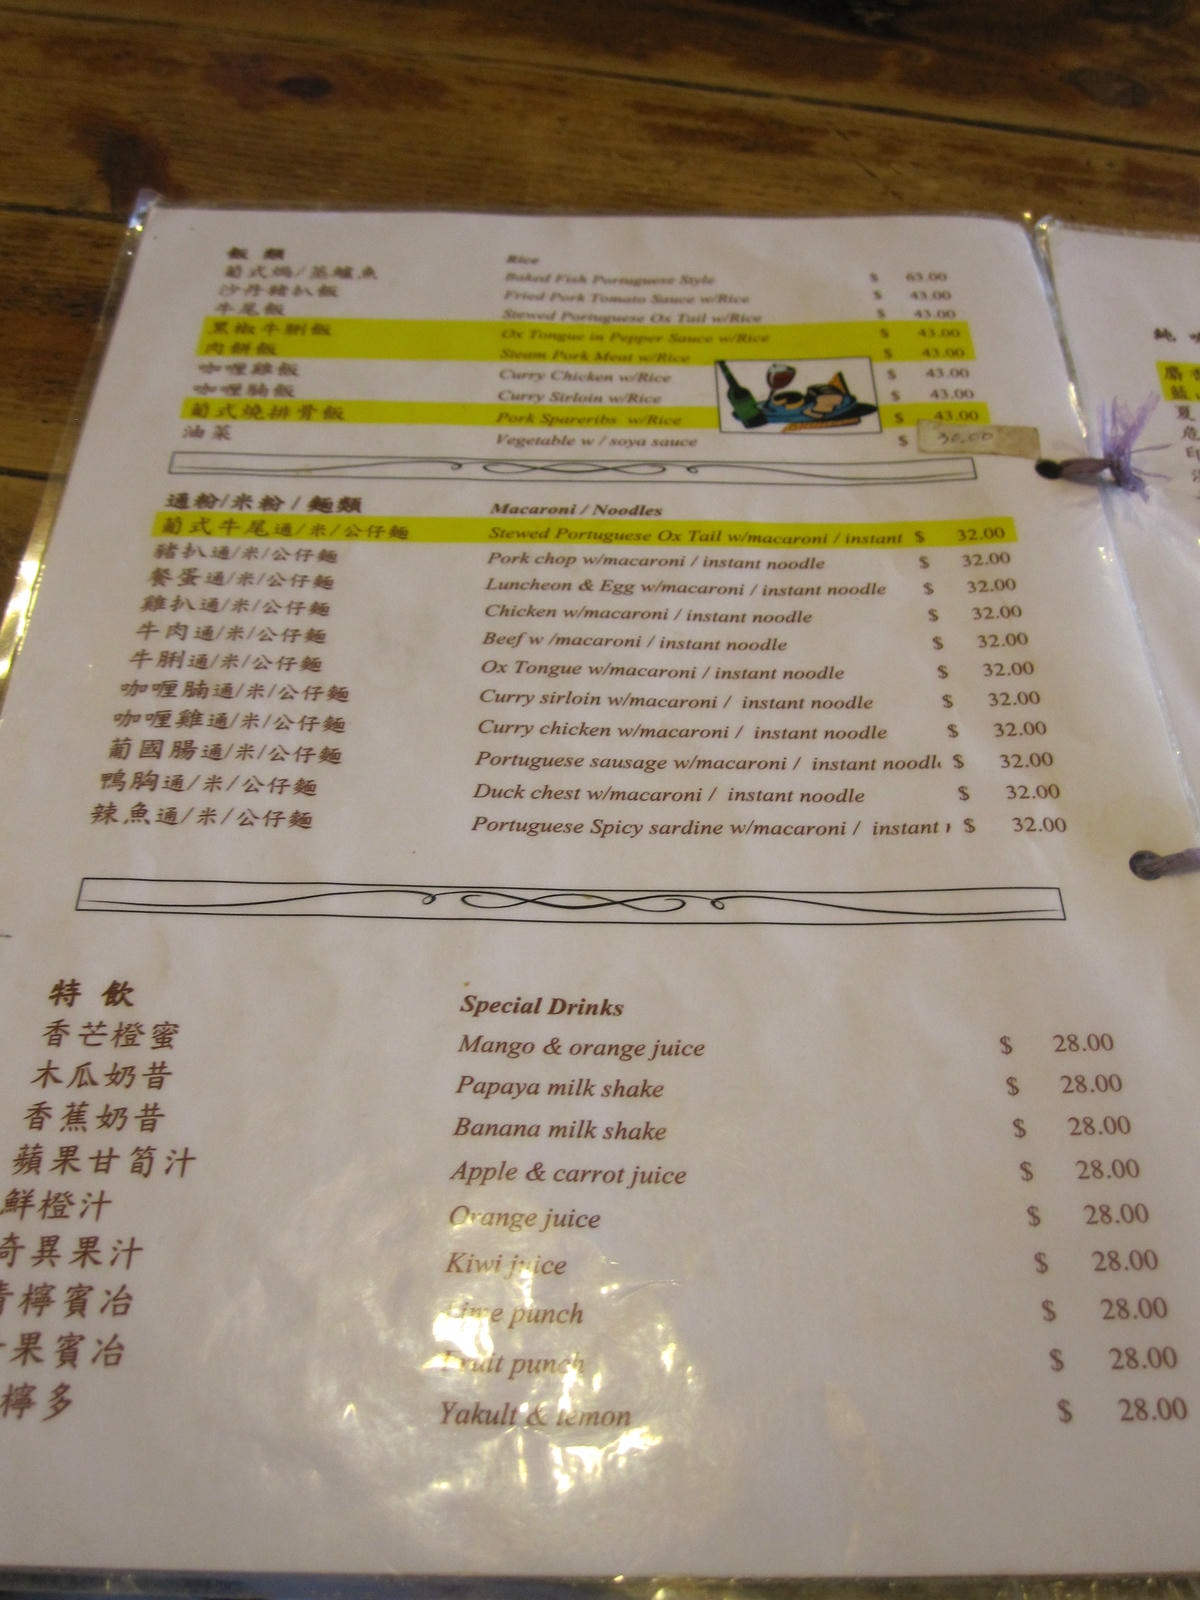 飯 類 Rice
葡式焗/蒸鱸魚 Baked Fish Portuguese Style $ 63.00
沙丹豬扒飯 Fried Pork Tomato Sauce w/Rice $ 43.00
牛尾飯 Stewed Portuguese Ox Tail w/Rice $ 43.00
黑椒牛脷飯 Ox Tongue in Pepper Sauce w/Rice $ 43.00
肉餅飯 Steam Pork Meat w/Rice $ 43.00
咖喱雞飯 Curry Chicken w/Rice $ 43.00
咖喱腩飯 Curry Sirloin w/Rice $ 43.00
葡式燒排骨飯 Pork Spareribs w/Rice $ 43.00
油菜 Vegetable w / soya sauce $ 30.00
通粉/米粉 / 麵類 Macaroni / Noodles
葡式牛尾通/米/公仔麵 Stewed Portuguese Ox Tail w/macaroni / instant $ 32.00
豬扒通/米/公仔麵 Pork chop w/macaroni / instant noodle $ 32.00
餐蛋通/米/公仔麵 Luncheon & Egg w/macaroni / instant noodle $ 32.00
雞扒通/米/公仔麵 Chicken w/macaroni / instant noodle $ 32.00
牛肉通/米/公仔麵 Beef w /macaroni / instant noodle $ 32.00
牛脷通/米/公仔麵 Ox Tongue w/macaroni / instant noodle $ 32.00
咖喱腩通/米/公仔麵 Curry sirloin w/macaroni / instant noodle $ 32.00
咖喱雞通/米/公仔麵 Curry chicken w/macaroni / instant noodle $ 32.00
葡國腸通/米/公仔麵 Portuguese sausage w/macaroni / instant noodl $ 32.00
鴨胸通/米/公仔麵 Duck chest w/macaroni / instant noodle $ 32.00
辣魚通/米/公仔麵 Portuguese Spicy sardine w/macaroni / instant $ 32.00
特 飲 Special Drinks
香芒橙蜜 Mango & orange juice $ 28.00
木瓜奶昔 Papaya milk shake $ 28.00
香蕉奶昔 Banana milk shake $ 28.00
蘋果甘筍汁 Apple & carrot juice $ 28.00
鮮橙汁 Orange juice $ 28.00
奇異果汁 Kiwi juice $ 28.00
青檸賓冶 Lime punch $ 28.00
果賓冶 Fruit punch $ 28.00
檸多 Yakult & lemon $ 28.00